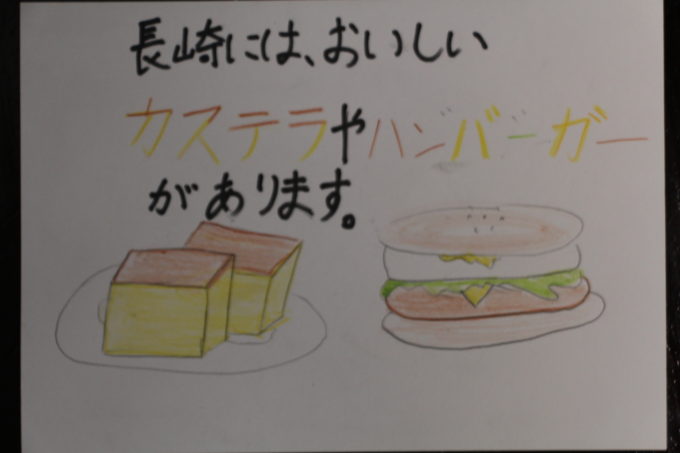 長崎には、おいしい
カステラやハンバーガー
があります。